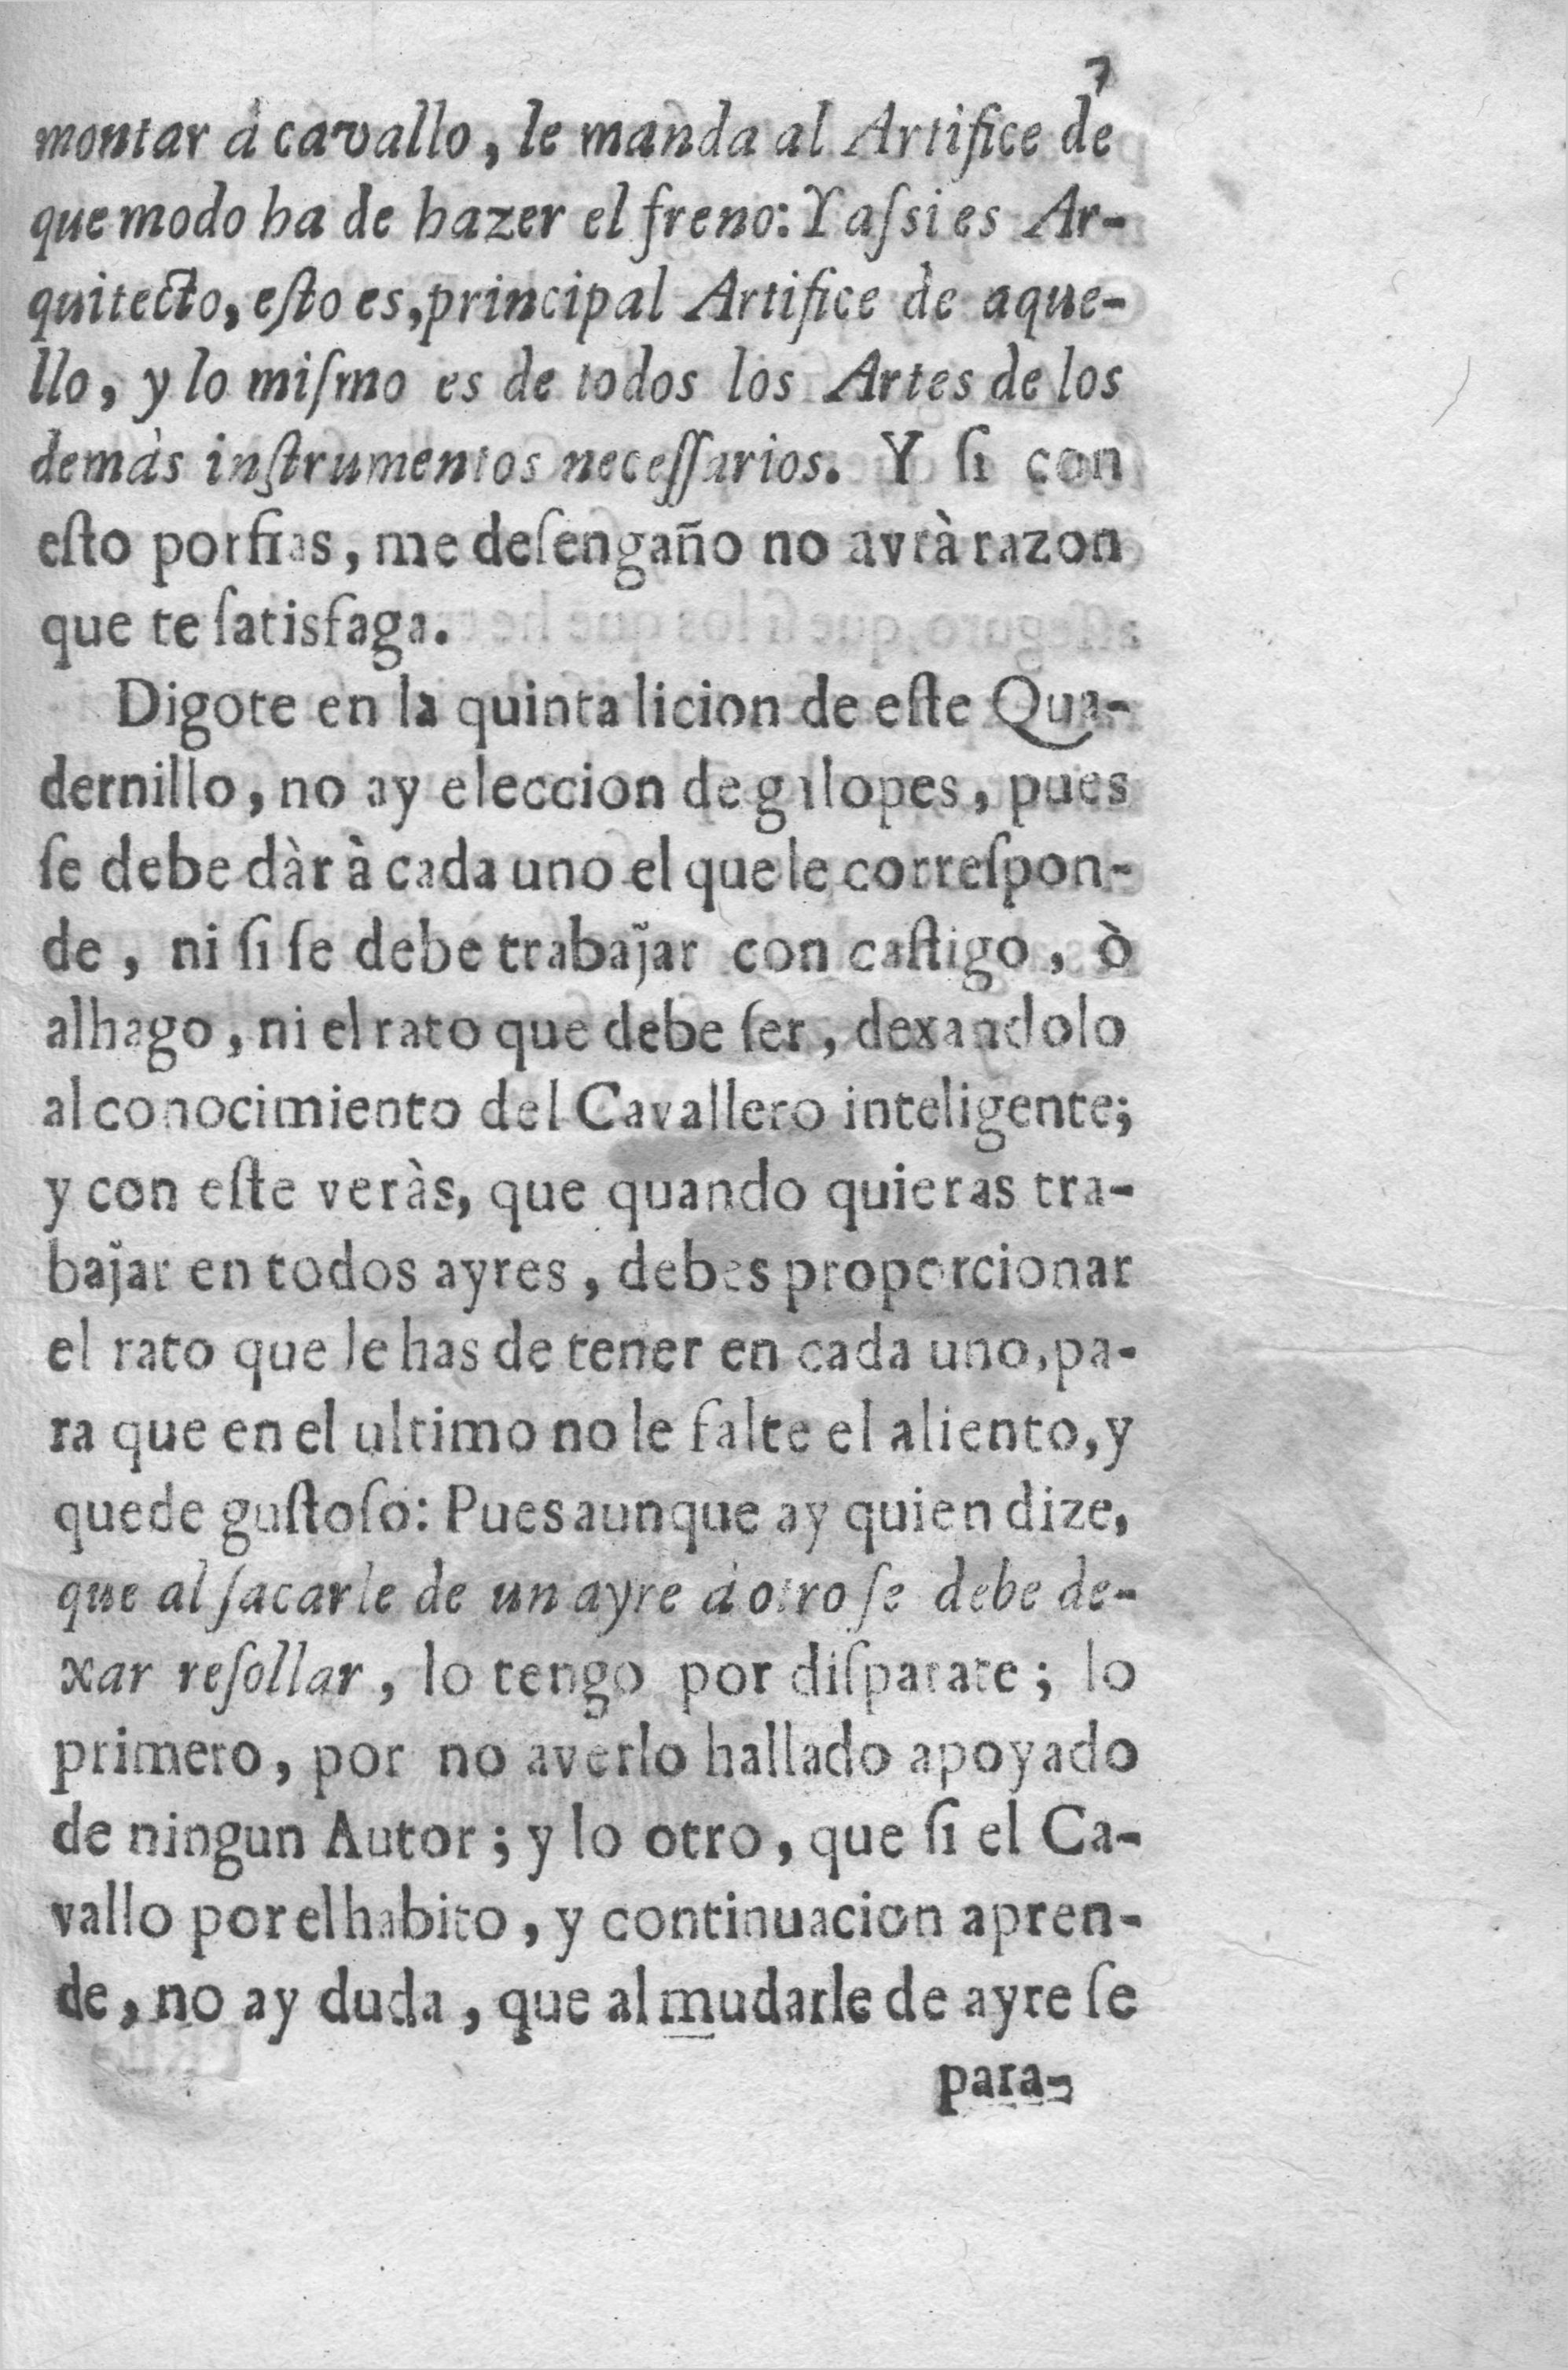 7
montar à cavallo, le manda al Artifice de
que modo ha de hazer el freno: Y aſsi es Ar-
quitecto, eſto es, principal Artifice de aque-
llo, y lo miſmo es de todos los Artes de los
demàs inſtrumentos neceſſarios. Y ſi con
eſto porfias, me deſengaño no avrà razon
que te ſatisfaga.
Digote en la quinta licion de eſte Qua-
dernillo, no ay eleccion de galopes, pues
ſe debe dàr à cada uno el que le correſpon-
de, ni ſi ſe debe trabajar con caſtigo, ò
alhago, ni el rato que debe ſer, dexandolo
al conocimiento del Cavallero inteligente;
y con eſte veràs, que quando quieras tra-
bajar en todos ayres, debes proporcionar
el rato que le has de tener en cada uno, pa-
ra que en el ultimo no le falte el aliento, y
quede guſtoſo: Pues aunque ay quien dize,
que al ſacarle de un ayre à otro ſe debe de-
xar reſollar, lo tengo por diſparate; lo
primero, por no averlo hallado apoyado
de ningun Autor; y lo otro, que ſi el Ca-
vallo por el habito, y continuacion apren-
de, no ay duda, que al mudarle de ayre ſe
para-